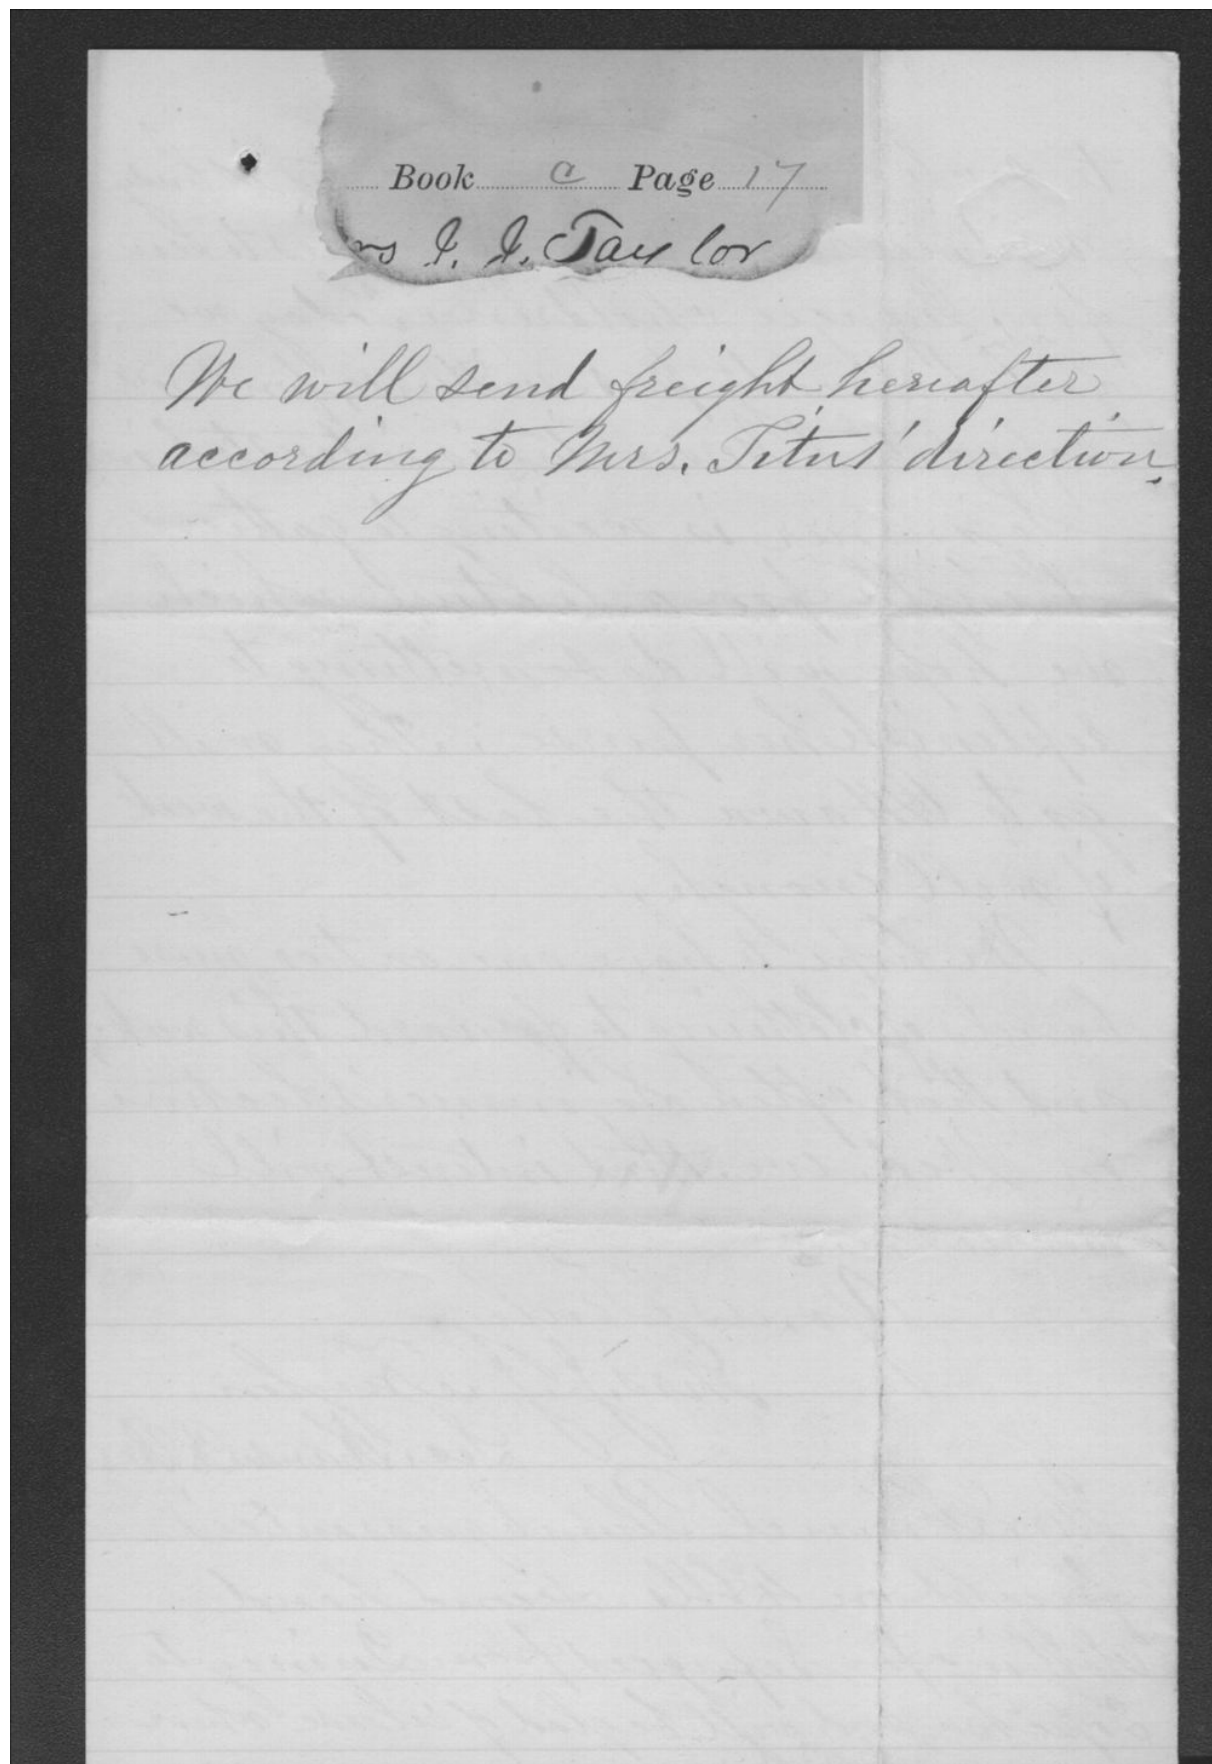 Book C Page 17
I. I. Taylor
We will send freight hereafter
according to Mrs. Titus' direction.